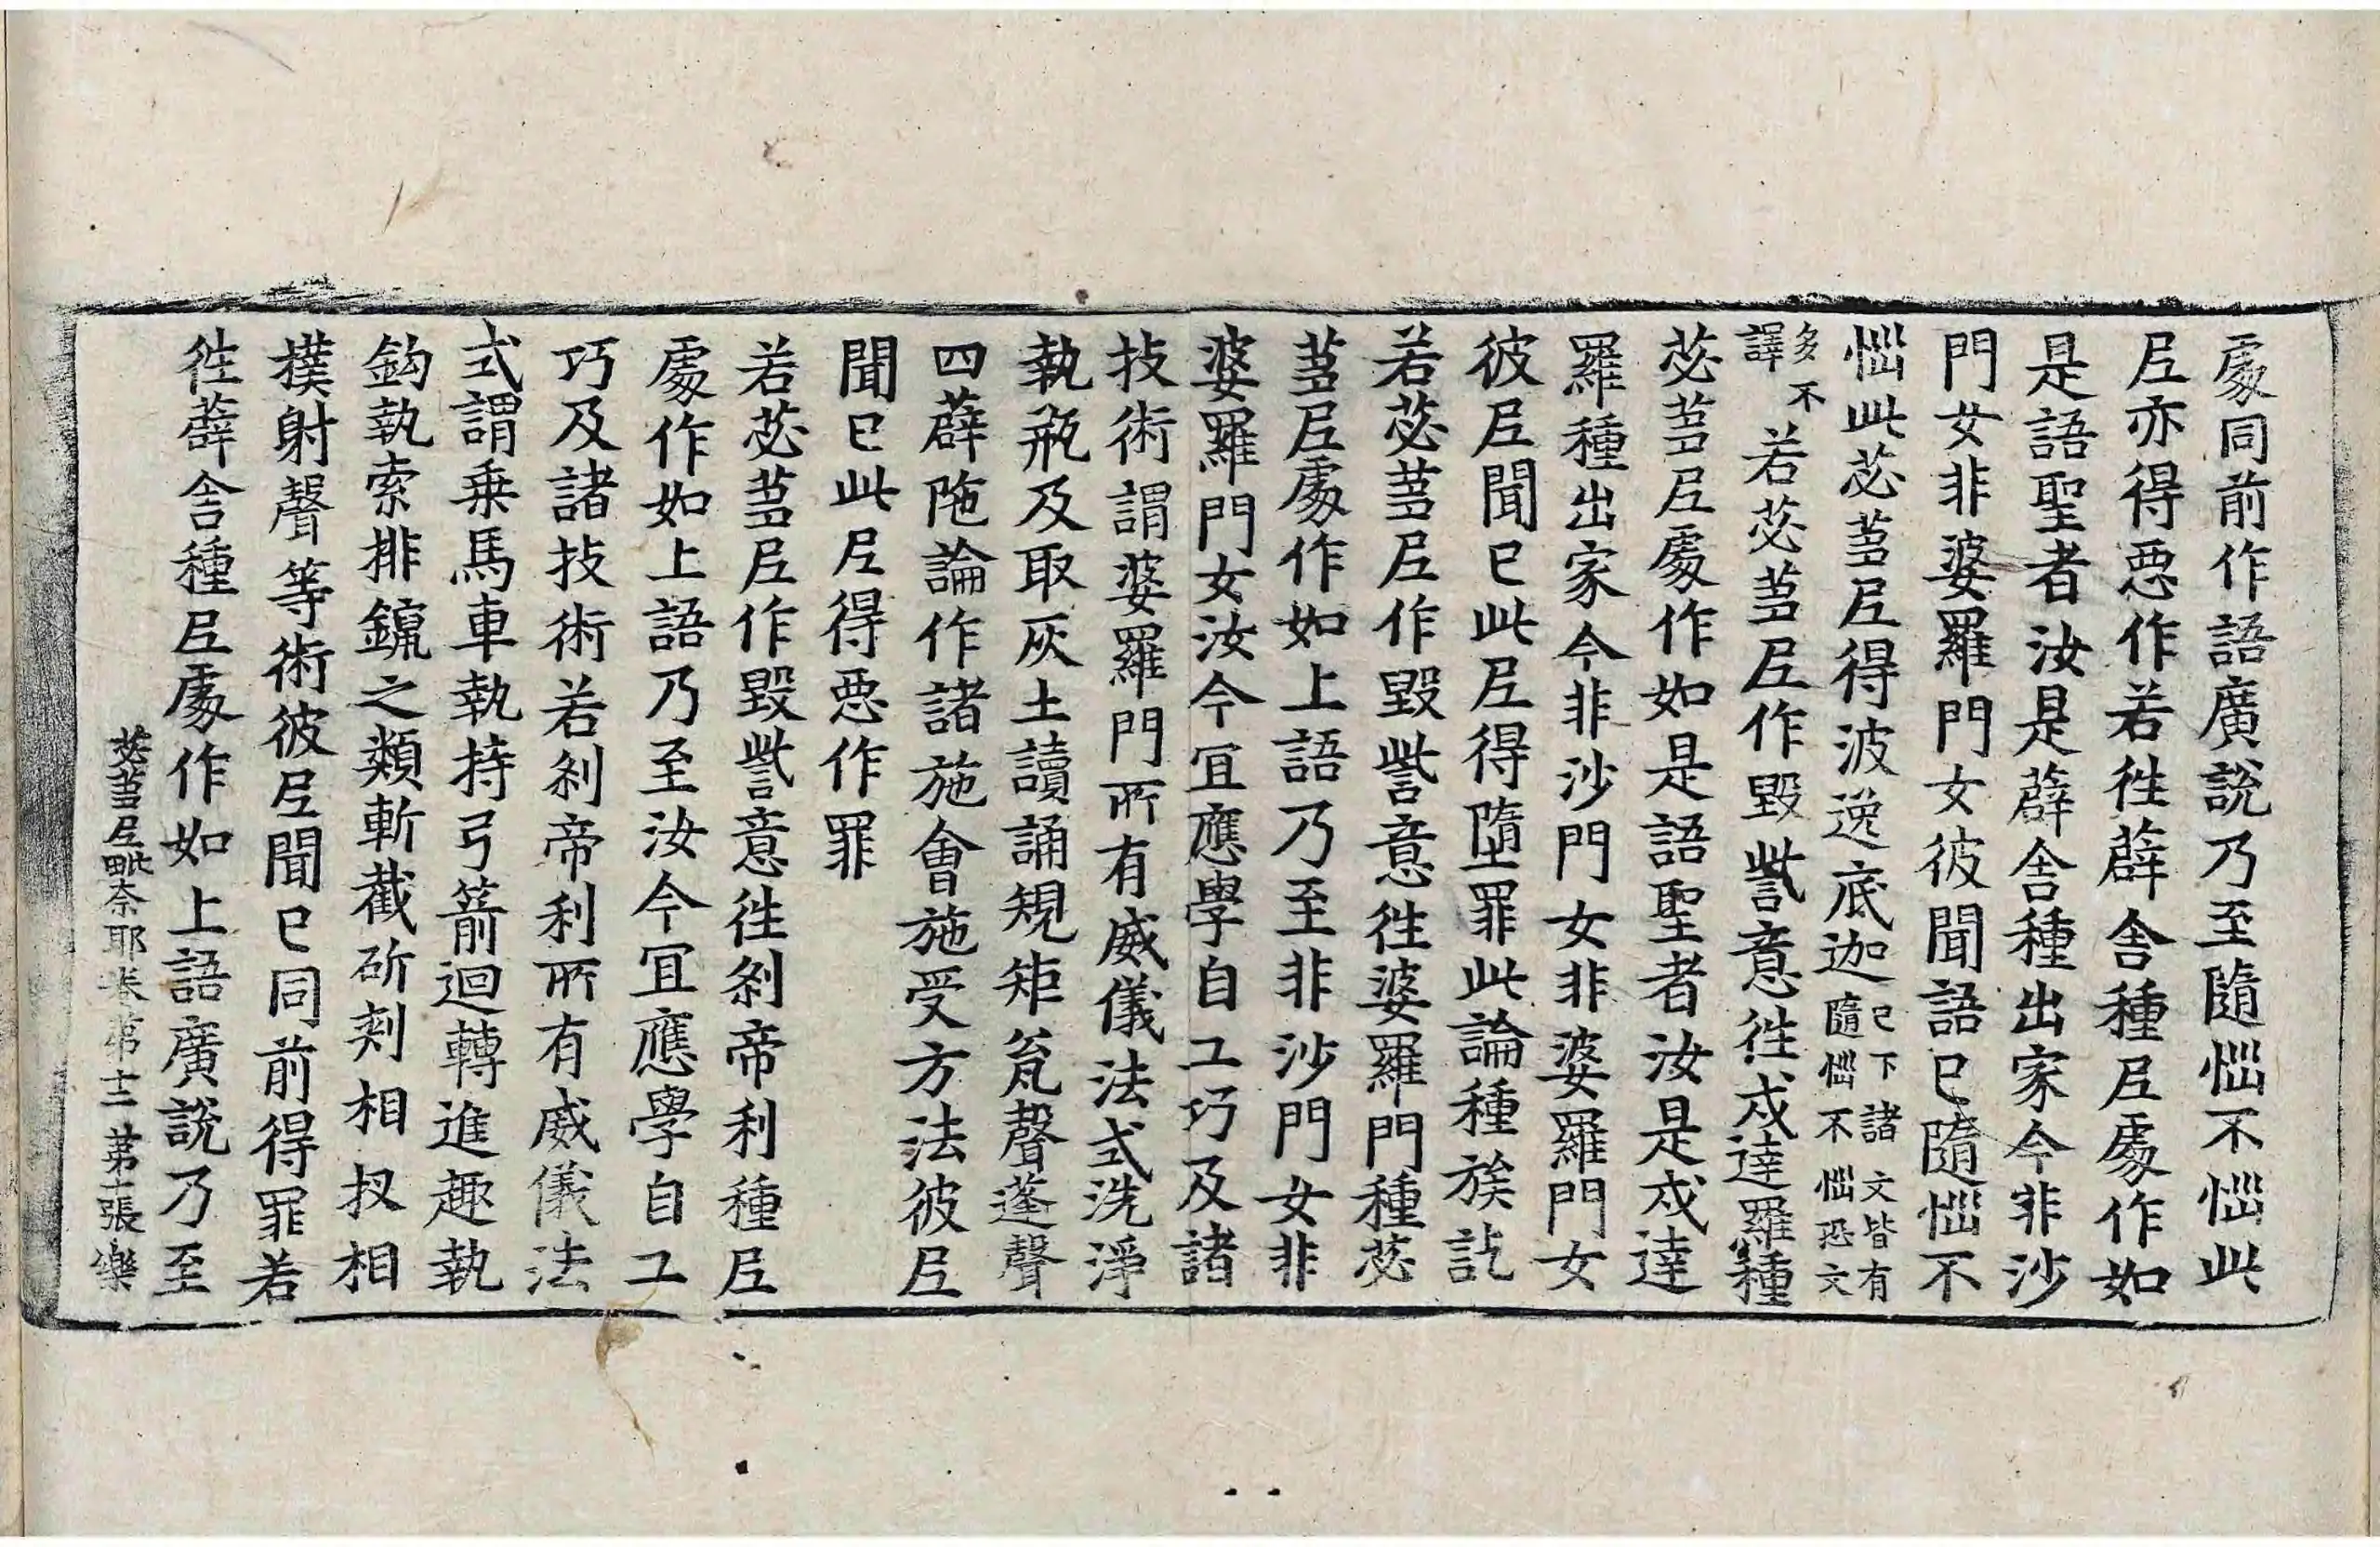 處同前作語廣說乃至隨惱不惱此
尼亦得惡作若往薜舍種尼處作如
是語聖者汝是薜舍種出家今非沙
門女非婆羅門女彼聞語已隨惱不
惱此苾芻尼得波逸底迦已下諸文皆有隨惱不惱恐文
多不譯若苾芻尼作毀訾意往戍達羅種
苾芻尼處作如是語聖者汝是戍達
羅種出家今非沙門女非婆羅門女
彼尼聞已此尼得墮罪此論種族訖
若苾芻尼作毀訾意往婆羅門種苾
芻尼處作如上語乃至非沙門女非
婆羅門女汝今宜應學自工巧及諸
技術謂婆羅門所有威儀法式洗淨
執瓶及取灰土讀誦規矩瓮聲蓬聲
四薜陁論作諸施會施受方法彼尼
聞已此尼得惡作罪
若苾芻尼作毀訾意往剎帝利種尼
處作如上語乃至汝今宜應學自工
巧及諸技術若剎帝利所有威儀法
式謂乗馬車執持弓箭迴轉進趣執
鈎執索排鑹之類斬截斫刾相扠相
撲射聲等術彼尼聞已同前得罪若
往薜舍種尼處作如上語廣說乃至
苾芻尼毗奈耶卷第十二 第十張 樂